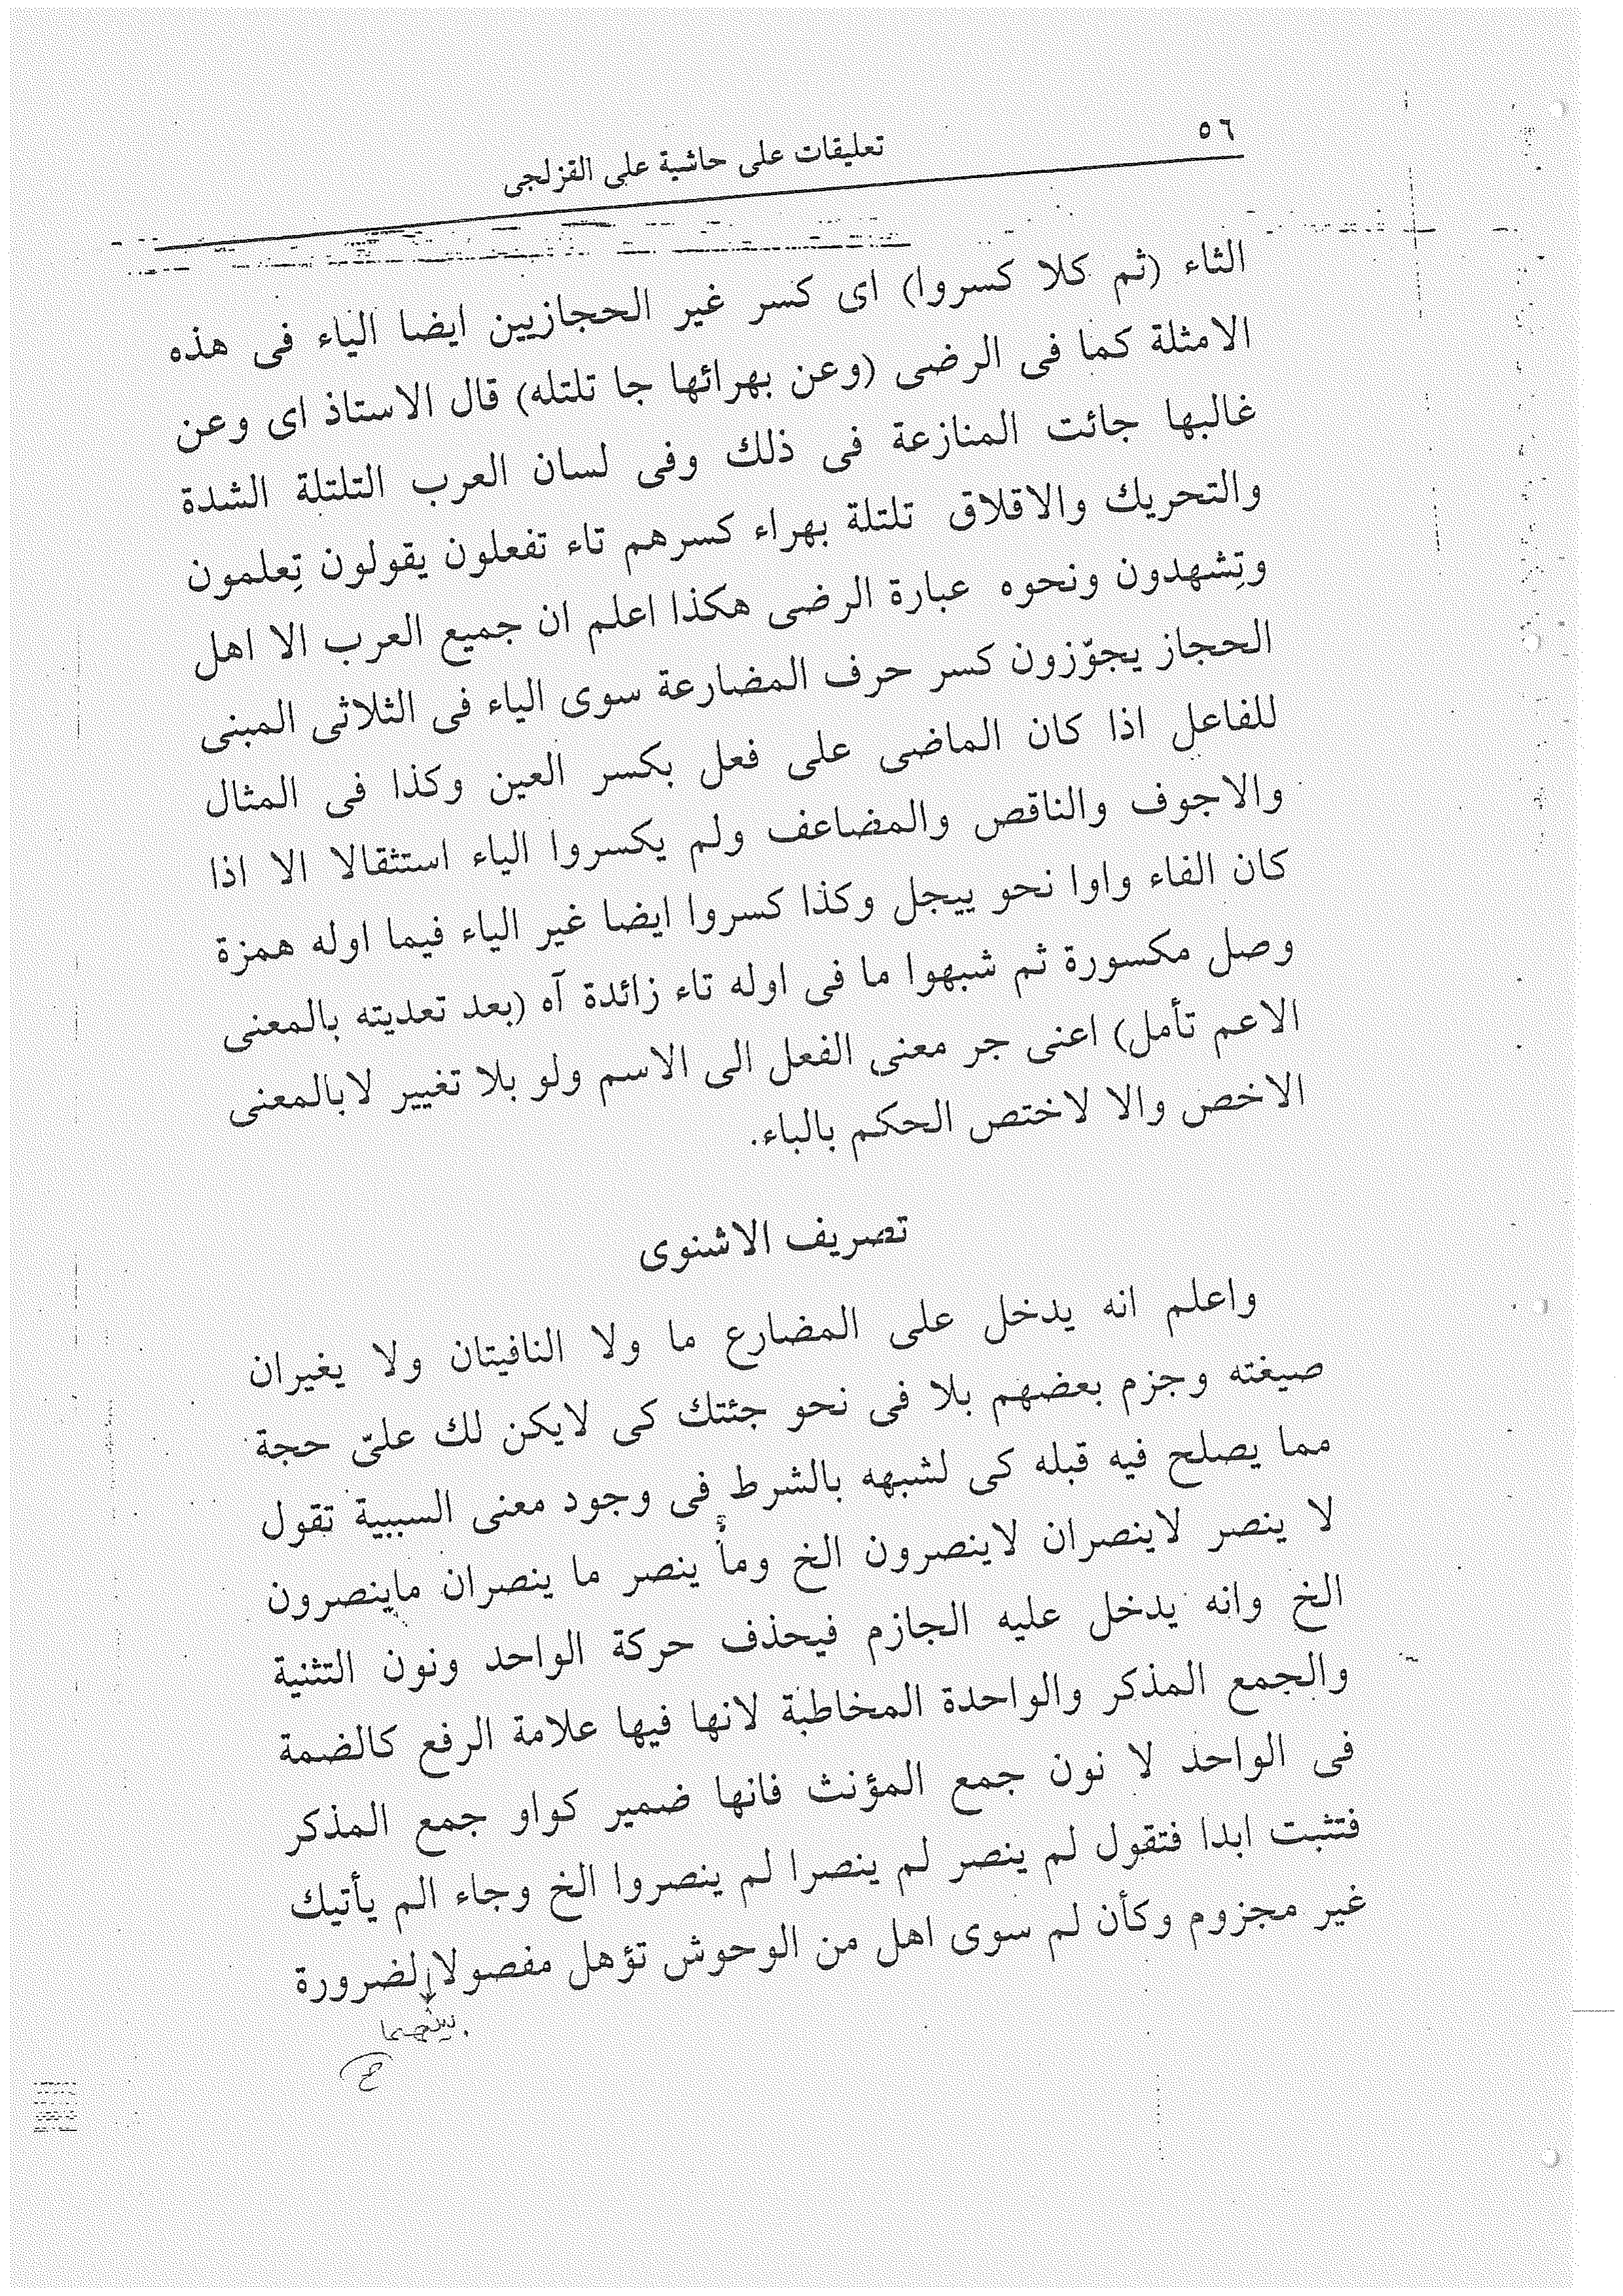 ٥٦
تعليقات على حاشية على القزلجى
الثاء (ثم كلا كسروا) اى كسر غير الحجازيين ايضا الياء فى هذه
الامثلة كما فى الرضى (وعن بهرائها جا تلتله) قال الاستاذ اى وعن
غالبها جائت المنازعة فى ذلك وفى لسان العرب التلتلة الشدة
والتحريك والاقلاق تلتلة بهراء كسرهم تاء تفعلون يقولون تِعلمون
وتِشهدون ونحوه عبارة الرضى هكذا اعلم ان جميع العرب الا اهل
الحجاز يجوّزون كسر حرف المضارعة سوى الياء فى الثلاثى المبنى
للفاعل اذا كان الماضى على فعل بكسر العين وكذا فى المثال
والاجوف والناقص والمضاعف ولم يكسروا الياء استثقالا الا اذا
كان الفاء واوا نحو ييجل وكذا كسروا ايضا غير الياء فيما اوله همزة
وصل مكسورة ثم شبهوا ما فى اوله تاء زائدة آه (بعد تعديته بالمعنى
الاعم تأمل) اعنى جر معنى الفعل الى الاسم ولو بلا تغيير لابالمعنى
الاخص والا لاختص الحكم بالباء.
تصريف الاشنوى
واعلم انه يدخل على المضارع ما ولا النافيتان ولا يغيران
صيغته وجزم بعضهم بلا فى نحو جئتك كى لايكن لك علىّ حجة
مما يصلح فيه قبله كى لشبهه بالشرط فى وجود معنى السببية تقول
لا ينصر لاينصران لاينصرون الخ وما ينصر ما ينصران ماينصرون
الخ وانه يدخل عليه الجازم فيحذف حركة الواحد ونون التثنية
والجمع المذكر والواحدة المخاطبة لانها فيها علامة الرفع كالضمة
فى الواحد لا نون جمع المؤنث فانها ضمير كواو جمع المذكر
فتثبت ابدا فتقول لم ينصر لم ينصرا لم ينصروا الخ وجاء الم يأتيك
غير مجزوم وكأن لم سوى اهل من الوحوش تؤهل مفصولا لضرورة
بينهما